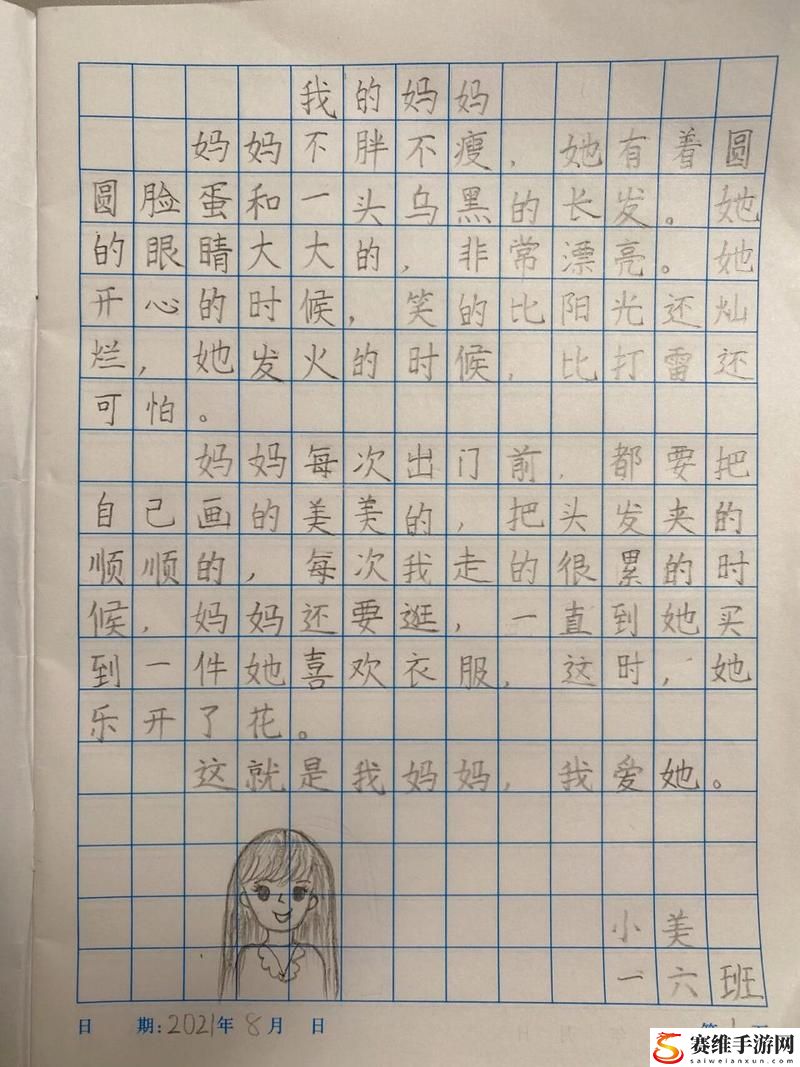 我的妈妈
妈妈不胖不瘦，她有着圆
圆脸蛋和一头乌黑的长发。她
的眼睛大大的，非常漂亮。她
开心的时候，笑的比阳光还灿
烂，她发火的时候，比打雷还
可怕。
妈妈每次出门前，都要把
自己画的美美的，把头发夹的
顺顺的，每次我走的很累的时
候，妈妈还要逛，一直到她买
到一件她喜欢衣服，这时，她
乐开了花。
这就是我妈妈，我爱她。
小美
一六班
日 期：2021年8月 日
赛维手游网
saiweianxun.com